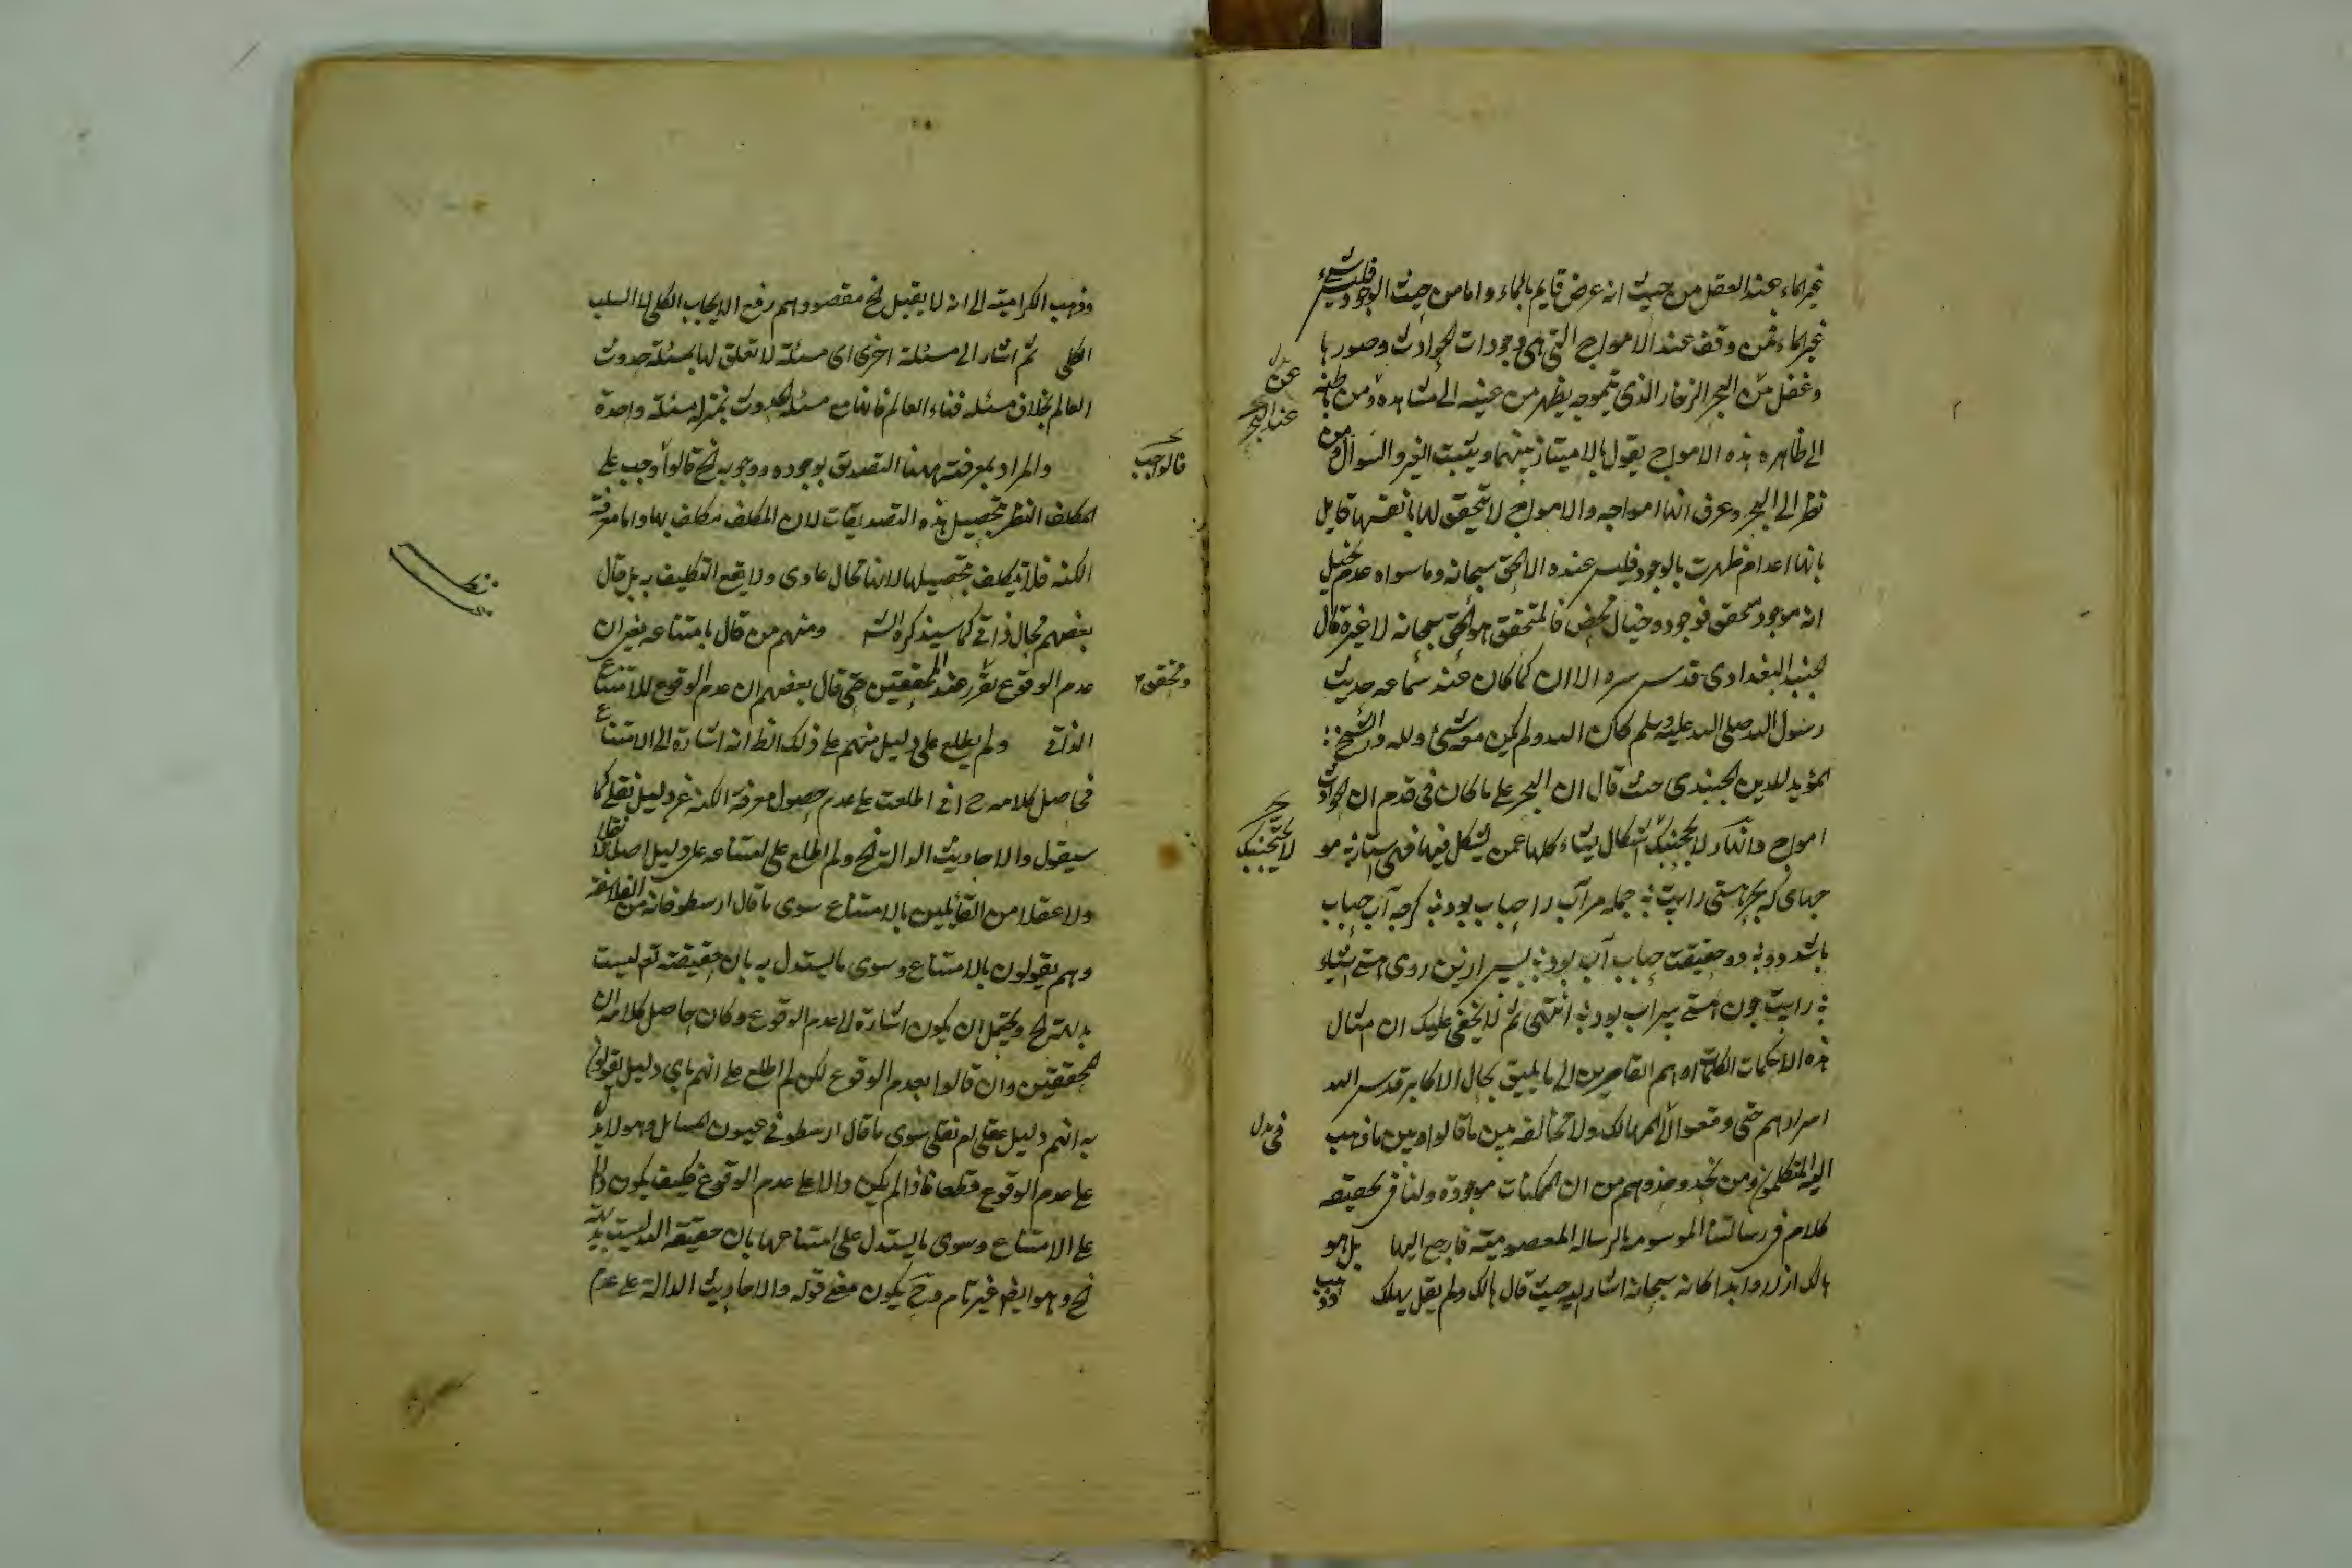 غير الماء عند العقل من حيث انه عرض قايم بالماء واما من حيث الوجود فليس شيء
غير الماء فمن وقف عند الامواج التي هي وجودات الحوادث وصورها
وغفل من البحر الزخار الذي بتموجه يظهر من غيبه الى شهاده ومن باطنه
الى ظاهره هذه الامواج يقول بالامتياز بينهما ويثبت الغير والسوال ومن
نظر الى البحر وعرف انها امواجه والامواج لا تحقق لها بانفسها قايل
بانها اعدام ظهرت بالوجود فليس عنده الا الحق سبحانه وما سواه عدم يخيل
انه موجود متحقق فوجوده خيال محض فالمتحقق هو الحق سبحانه لا غيره قال
الجنيد البغدادي قدس سره الان كما كان عند سماعه حديث
رسول الله صلى الله عليه وسلم كان الله ولم يكن معه شئ ولله در الشيخ
المؤيد للدين الجنيدي حيث قال ان البحر على ما كان في قدم ان الحوادث
امواج وانهار لا يحجبنك اشكال يشاء كلها عمن يشكل فيها فهي استار
كه بحر هستي را جمله مر آب را حباب بود گرچه آب حباب
باشد دو در حقيقت حباب آب بود پس ازين روى هستي اشياء
راست چون هستي سراب بود انتهى ثم لا يخفى عليك ان مثال
هذه الكلمات اوهم القاصرين الى ما يليق بحال الاكابر قدس الله
اسرارهم حتى وقعوا المهالك ولا مخالفة بين ما قالوا وبين ما ذهب
اليه المتكلمون ومن يحذو حذوهم من ان الممكنات موجودة ولنا في تحقيقه
كلام في رسالتنا الموسومة بالرسالة المعصومية فارجع اليها بل هو
هالك ازلا وابدا كانه سبحانه اشار اليه حيث قال هالك ولم يقل يهلك
عن بدل
عند البحر
لا يحجبنك
في بدل
وذهب
وذهب الكرامية الى انه لا يقبل الخ مقصودهم رفع الايجاب الكلي لا السلب
الكلي ثم اشار الى مسئلة اخرى اى مسئلة لا تعلق لها بمسئلة حدوث
العالم بخلاف مسئلة فناء العالم فانها مع مسئلة الحدوث بمنزلة مسئلة واحدة
والمراد بمعرفته ههنا التصديق بوجوده ووجوبه الخ قالوا وجب على
المكلف النظر تحصيل هذه التصديقات لان المكلف مكلف بها واما معرفة
الكنه فلا تكلف بتحصيلها لانها محال عادى ولا يقع التكليف به بل قال
بعضهم محال ذاتي كما سيذكره الش ومنهم من قال بامتناعه يعني ان
عدم الوقوع تقرر عند المحققين حتى قال بعضهم ان عدم الوقوع للامتناع
الذاتي ولم يطلع على دليل منهم على ذلك الظ انه اشارة الى الامتناع
فحاصل كلامه ح اني اطلعت على عدم حصول معرفة الكنه عن دليل نقلي كما
سيقول والاحاديث الدالة الخ ولم اطلع على امتناعه على دليل اصلا لا نقلا
ولا عقلا من القائلين بالامتناع سوى ما قال ارسطو فانه من الفلاسفة
وهم يقولون بالامتناع وسوى ما يستدل به بان حقيقته تع ليست
بديهة الخ ويحتمل ان يكون اشارة الى عدم الوقوع وكان حاصل كلامه ان
المحققين وان قالوا بعدم الوقوع لكن لم اطلع على انهم باى دليل يقولون
به انهم دليل عقلي ام نقلي سوى ما قال ارسطو في عيون المسائل وهو لا يدل
على عدم الوقوع قطعا فاذا لم يكن دالا على عدم الوقوع فكيف يكون دالا
على الامتناع وسوى ما يستدل على امتناعها بان حقيقة الله ليست بديهة
الخ وهو ايضا غير تام وح يكون معنى قوله والاحاديث الدالة على عدم
قالوا وجب